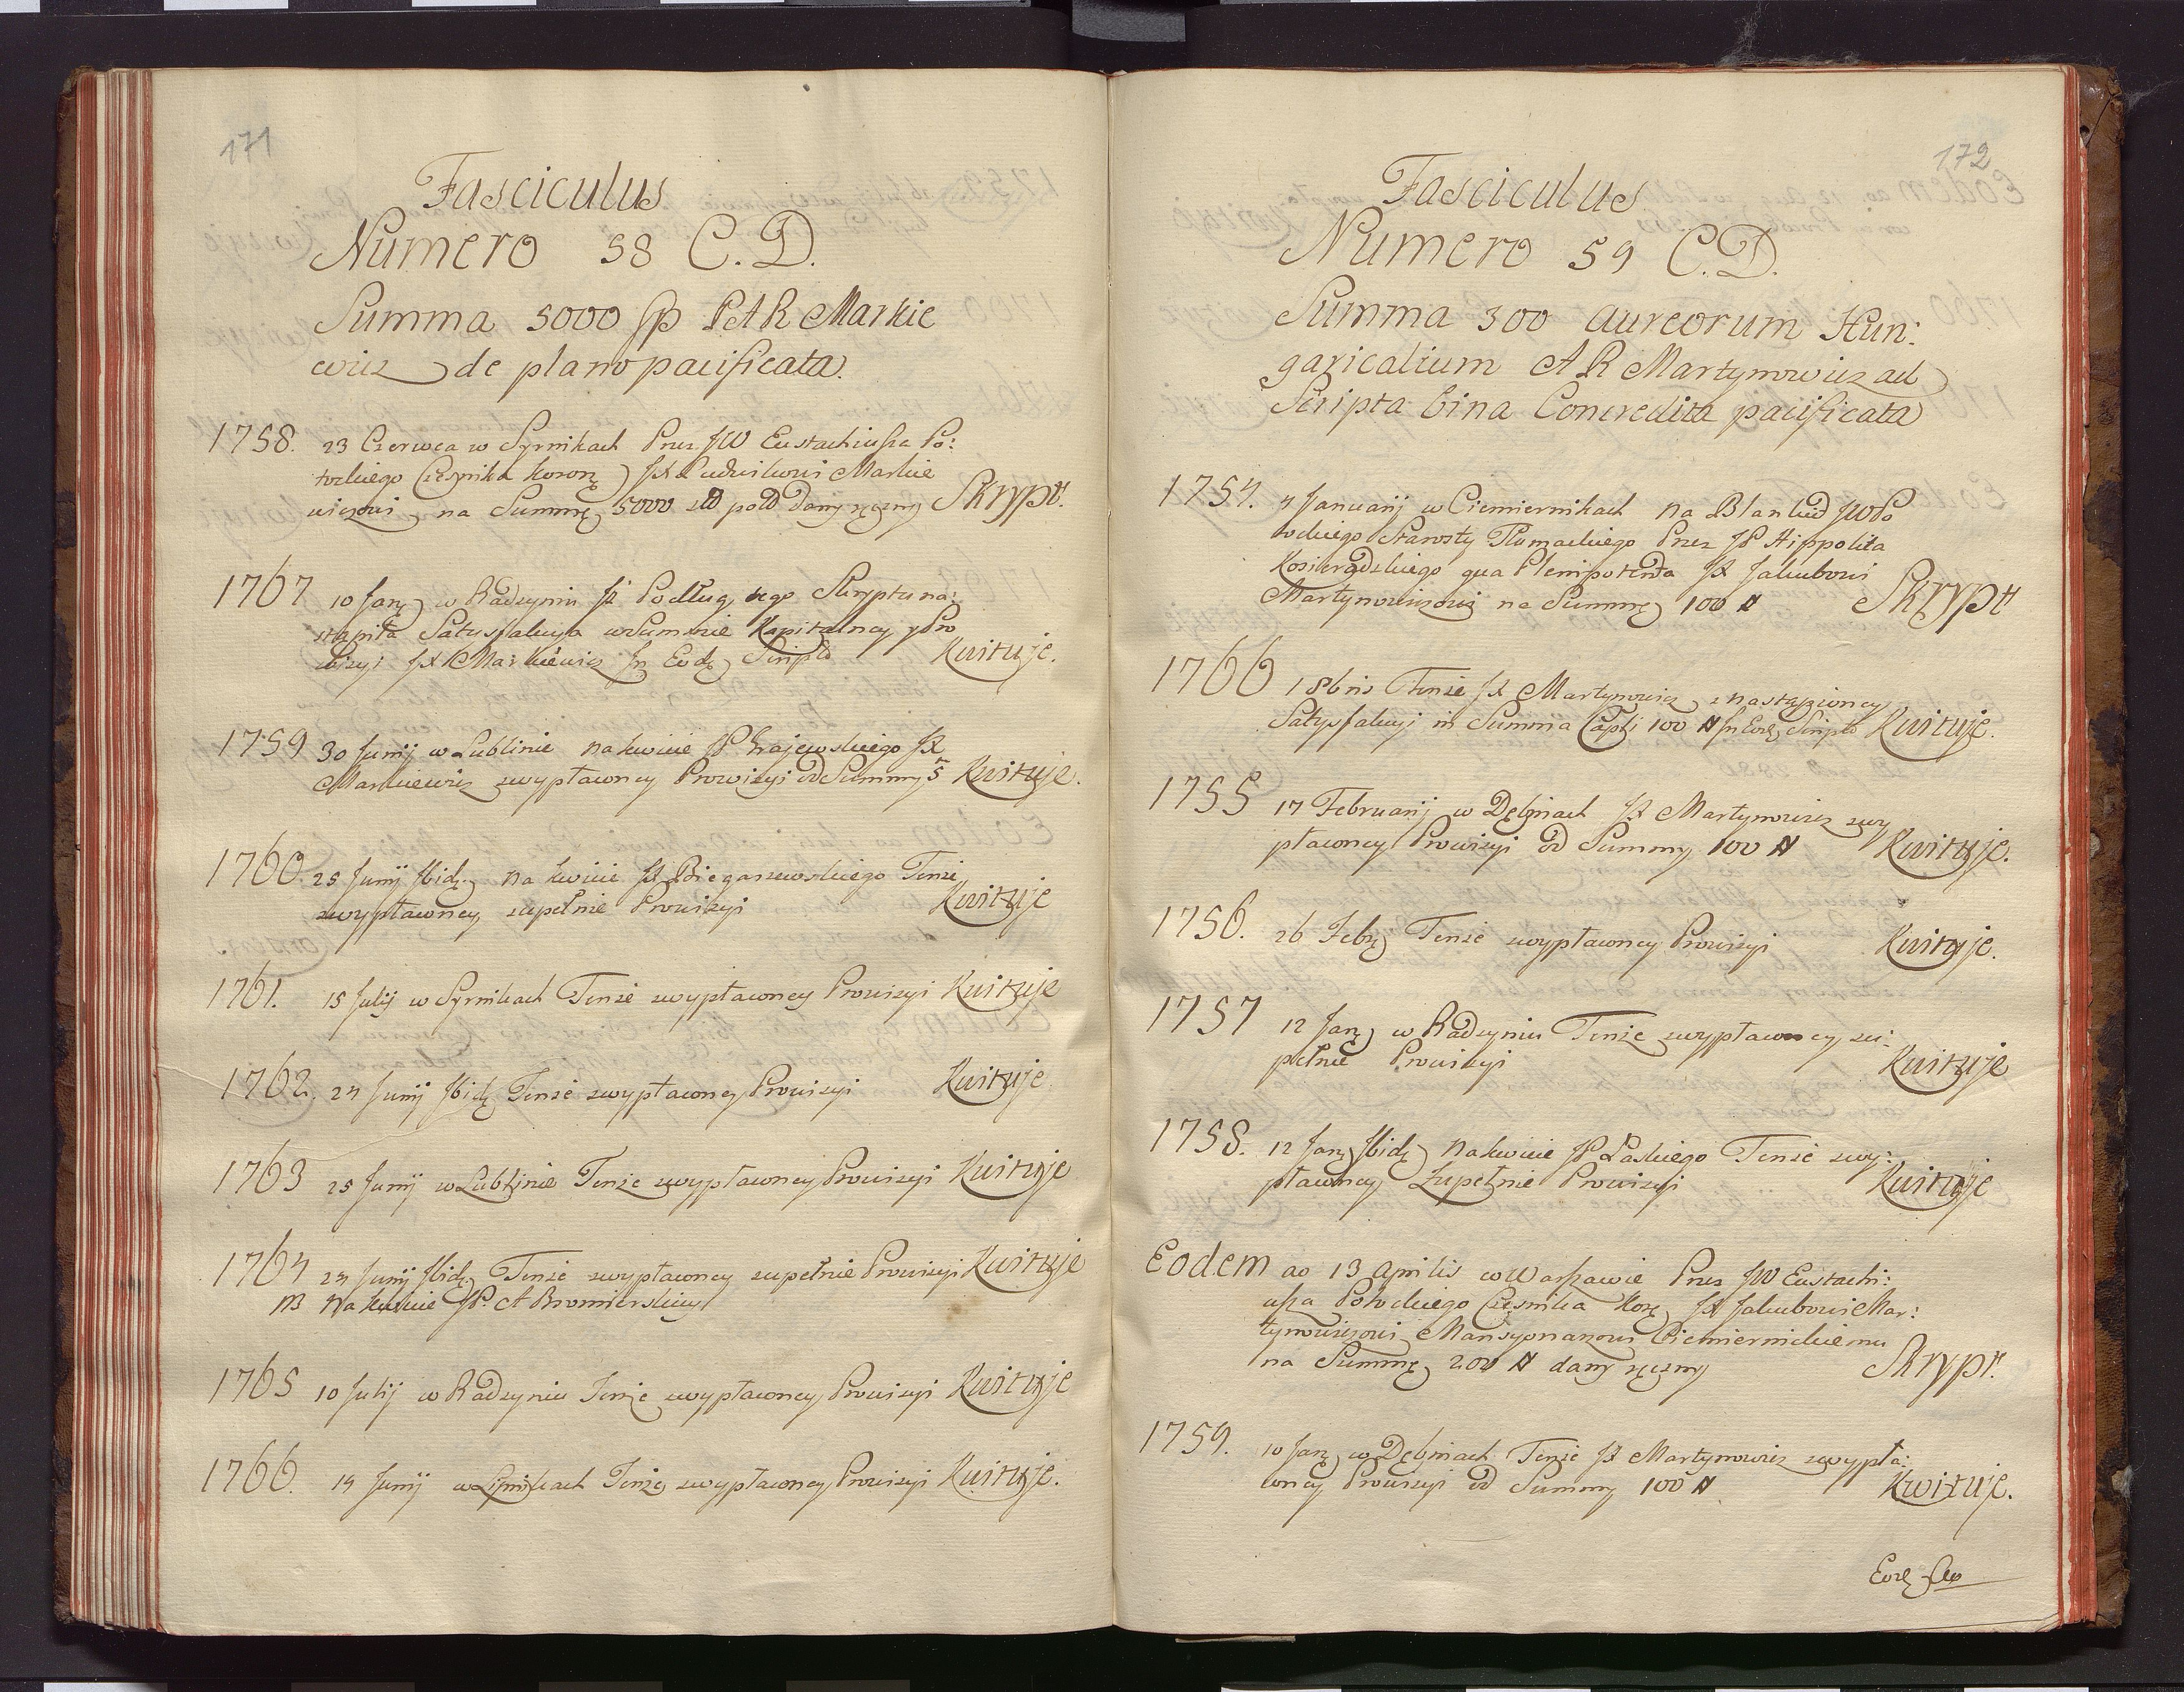 171
Fasciculus
Numero 58 C. D.
Summa 5000 fp P A R Markie
wicz de plano pacificata.
1758. 23 Czerwca w Syrnikach Przez JW Eustachiusza Po:
tockiego Cześnika Koronę JX Ludwikowi Markie
wiczowi na Summę 5000 dany ręczny Skrypt.
1767 10 Janę w Radzyniu iż Podług tego Skryptu na:
stąpiła Satysfakcya w Summie Kapitalney y Pro
wizyi JX Markiewicz In Eodę Scripto Kwituje.
1759 30 Junij w Lublinie na kwicie JP Krajewskiego JX
Markiewicz z wypłaconey Prowizyi od Summy 5 Kwituje.
1760. 25 Junij Ibidę na kwicie JX Biegaszewskiego Tenże
z wypłaconey zupełnie Prowizyi Kwituje
1761. 15 Julij w Syrnikach Tenże z wypłaconey Prowizyi Kwituje
1762. 24 Junij Ibidę Tenże z wypłaconey Prowizyi Kwituje
1763 25 Junij w Lublinie Tenże z wypłaconey Prowizyi Kwituje
1764 24 Junij Ibidę Tenże z wypłaconey zupełnie Prowizyi Kwituje
NB Na kwicie JP. A Bromierskiey
1765 10 Julij w Radzyniu Tenże z wypłaconey Prowizyi Kwituje
1766. 14 Junij w Tenże z wypłaconey Prowizyi Kwituje.
172
Fasciculus
Numero 59 C. D.
Summa 300 aureorum Hun:
garicalium A R Martynowicz ad
Scripta bina Concredita pacificata
1754. 4 Januarij w Ciemiernikach na Blankied JWPo
tockiego Starosty Tłumackiego Przez JP Hippolita
Kosieradzkiego qua Plenipotenta JX Jakubowi
Martynowiczowi na Summę 100 # Skrypt
1766 1 8bris Tenże JX Martynowicz z nastąpioney
Satysfakcyi in Summa Captli 100 # In Eodę Scripto Kwituje.
1755 17 Februarij w Dębinach JX Martynowicz z wy
płaconey Prowizyi od Summy 100 # Kwituje.
1756. 26 Febrę Tenże z wypłaconey Prowizyi Kwituje.
1757 12 Janę w Radzyniu Tenże z wypłaconey zu:
pełnie Prowizyi Kwituje
1758. 12 Janę Ibidę na kwicie JP Laskiego Tenże z wy:
płaconey Zupełnie Prowizyi Kwituje
Eodem ao 13 Aprilis w Warszawie Przez JW Eustachi:
usza Potockiego Cześnika Korę JX Jakubowi Mar:
tynowiczowi Mansyonarzowi Ciemiernickiemu
na Summę 200 # dany ręczny Skrypt.
1759. 10 Janę w Dębinach Tenże JX Martynowicz z wypła:
coney Prowizyi od Summy 100 # Kwituje.
Eodę Ao